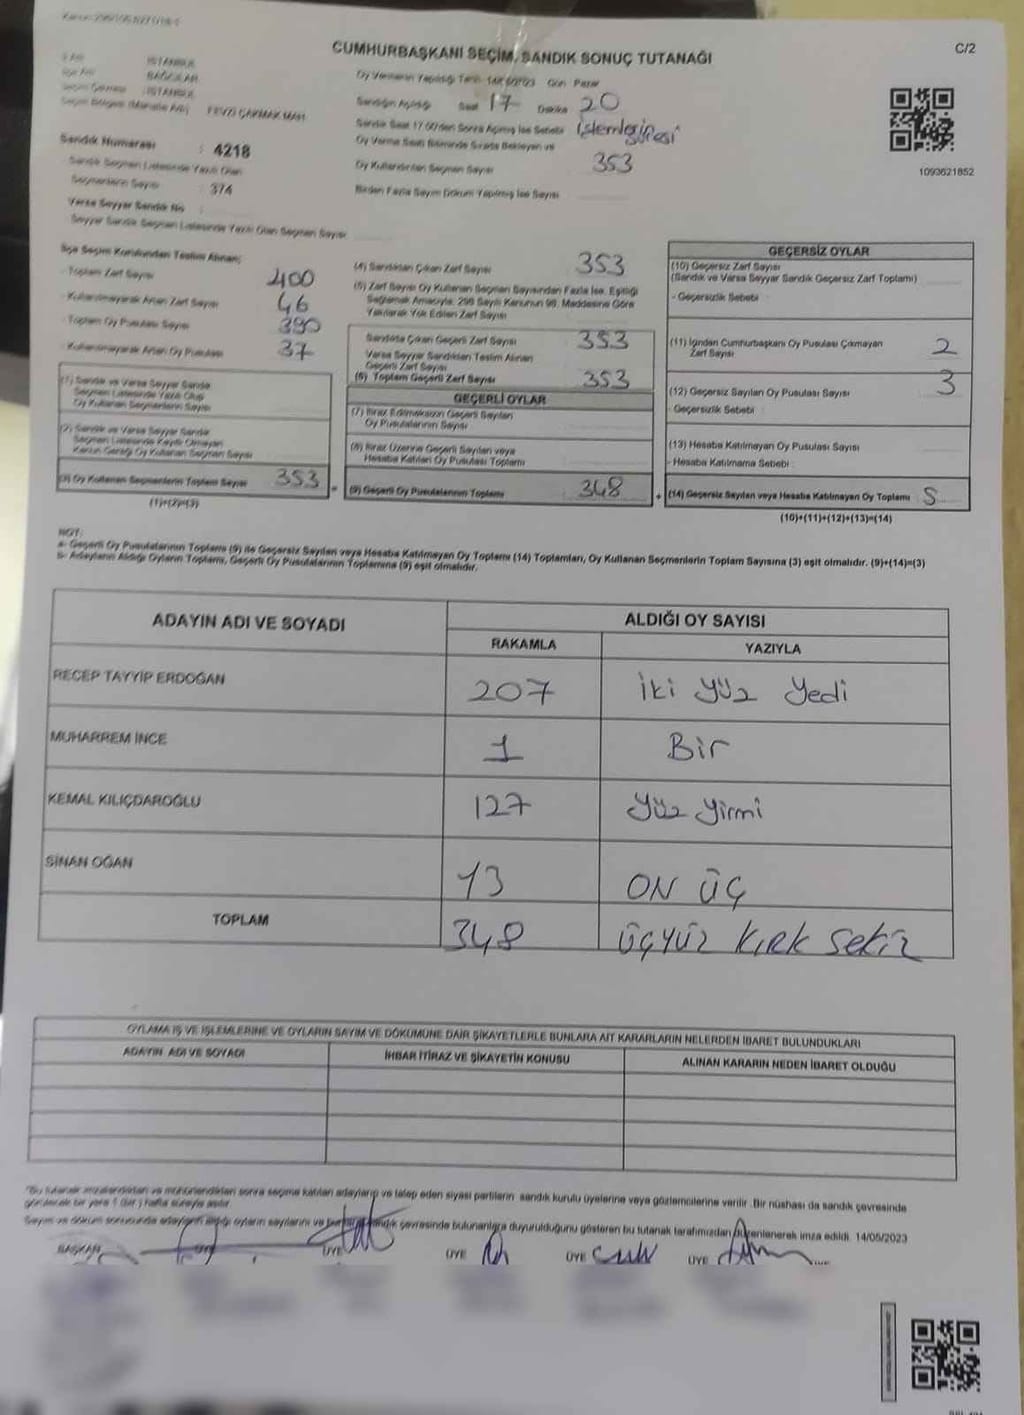 CUMHURBAŞKANI SEÇİMİ SANDIK SONUÇ TUTANAĞI
C/2
İli Adı : İSTANBUL
İlçe Adı : BAĞCILAR
Seçim Çevresi : İSTANBUL
Seçim Bölgesi (Mahalle Adı) : FEVZİ ÇAKMAK MAH.
Oy Vermenin Yapıldığı Tarih 14/05/2023 Gün Pazar
Sandığın Açıldığı Saat 17 Dakika 20
Sandık Saat 17:00'den Sonra Açılmış İse Sebebi
Oy Verme Saati Bitiminde Sırada Bekleyen ve
Oy Kullandırılan Seçmen Sayısı 353
Birden Fazla Sayım Döküm Yapılmış İse Sayısı
1093621852
Sandık Numarası : 4218
Sandık Seçmen Listesinde Yazılı Olan
Seçmenlerin Sayısı : 374
Varsa Seyyar Sandık No :
Seyyar Sandık Seçmen Listesinde Yazılı Olan Seçmen Sayısı
İlçe Seçim Kurulundan Teslim Alınan;
- Toplam Zarf Sayısı 400
- Kullanılmayarak Artan Zarf Sayısı 46
- Toplam Oy Pusulası Sayısı 390
- Kullanılmayarak Artan Oy Pusulası 37
(1) Sandık ve Varsa Seyyar Sandık
Seçmen Listesinde Yazılı Olup
Oy Kullanan Seçmenlerin Sayısı
(2) Sandık ve Varsa Seyyar Sandık
Seçmen Listesinde Kayıtlı Olmayan
Kanun Gereği Oy Kullanan Seçmen Sayısı
(3) Oy Kullanan Seçmenlerin Toplam Sayısı 353
(1)+(2)=(3)
(4) Sandıktan Çıkan Zarf Sayısı 353
(5) Zarf Sayısı Oy Kullanan Seçmen Sayısından Fazla İse, Eşitliği
Sağlamak Amacıyla, 298 Sayılı Kanunun 98. Maddesine Göre
Yakılarak Yok Edilen Zarf Sayısı
Sandıkta Çıkan Geçerli Zarf Sayısı 353
Varsa Seyyar Sandıktan Teslim Alınan
Geçerli Zarf Sayısı
(6) Toplam Geçerli Zarf Sayısı 353
GEÇERLİ OYLAR
(7) İtiraz Edilmeksizin Geçerli Sayılan
Oy Pusulalarının Sayısı
(8) İtiraz Üzerine Geçerli Sayılan veya
Hesaba Katılan Oy Pusulası Toplamı
= (9) Geçerli Oy Pusulalarının Toplamı 348
GEÇERSİZ OYLAR
(10) Geçersiz Zarf Sayısı
(Sandık ve Varsa Seyyar Sandık Geçersiz Zarf Toplamı)
- Geçersizlik Sebebi :
(11) İçinden Cumhurbaşkanı Oy Pusulası Çıkmayan
Zarf Sayısı 2
(12) Geçersiz Sayılan Oy Pusulası Sayısı 3
- Geçersizlik Sebebi :
(13) Hesaba Katılmayan Oy Pusulası Sayısı
- Hesaba Katılmama Sebebi :
+ (14) Geçersiz Sayılan veya Hesaba Katılmayan Oy Toplamı 5
(10)+(11)+(12)+(13)=(14)
NOT:
a- Geçerli Oy Pusulalarının Toplamı (9) ile Geçersiz Sayılan veya Hesaba Katılmayan Oy Toplamı (14) Toplamları, Oy Kullanan Seçmenlerin Toplam Sayısına (3) eşit olmalıdır. (9)+(14)=(3)
b- Adayların Aldığı Oyların Toplamı, Geçerli Oy Pusulalarının Toplamına (9) eşit olmalıdır.
ADAYIN ADI VE SOYADI
ALDIĞI OY SAYISI
RAKAMLA YAZIYLA
RECEP TAYYİP ERDOĞAN 207 İki yüz yedi
MUHARREM İNCE 1 Bir
KEMAL KILIÇDAROĞLU 127 yüz yirmi
SİNAN OĞAN 13 ON ÜÇ
TOPLAM 348 üçyüz kırk sekiz
OYLAMA İŞ VE İŞLEMLERİNE VE OYLARIN SAYIM VE DÖKÜMÜNE DAİR ŞİKAYETLERLE BUNLARA AİT KARARLARIN NELERDEN İBARET BULUNDUKLARI
ADAYIN ADI VE SOYADI İHBAR İTİRAZ VE ŞİKAYETİN KONUSU ALINAN KARARIN NEDEN İBARET OLDUĞU
*Bu tutanak imzalandıktan ve mühürlendikten sonra seçime katılan adayların ve talep eden siyasi partilerin sandık kurulu üyelerine veya gözlemcilerine verilir. Bir nüshası da sandık çevresinde
görülecek bir yere 1 (bir) hafta süreyle asılır.
Sayım ve döküm sonucunda adayların aldığı oyların sayılarını ve sandık çevresinde bulunanlara duyurulduğunu gösteren bu tutanak tarafımızdan düzenlenerek imza edildi. 14/05/2023
BAŞKAN ÜYE ÜYE ÜYE ÜYE ÜYE